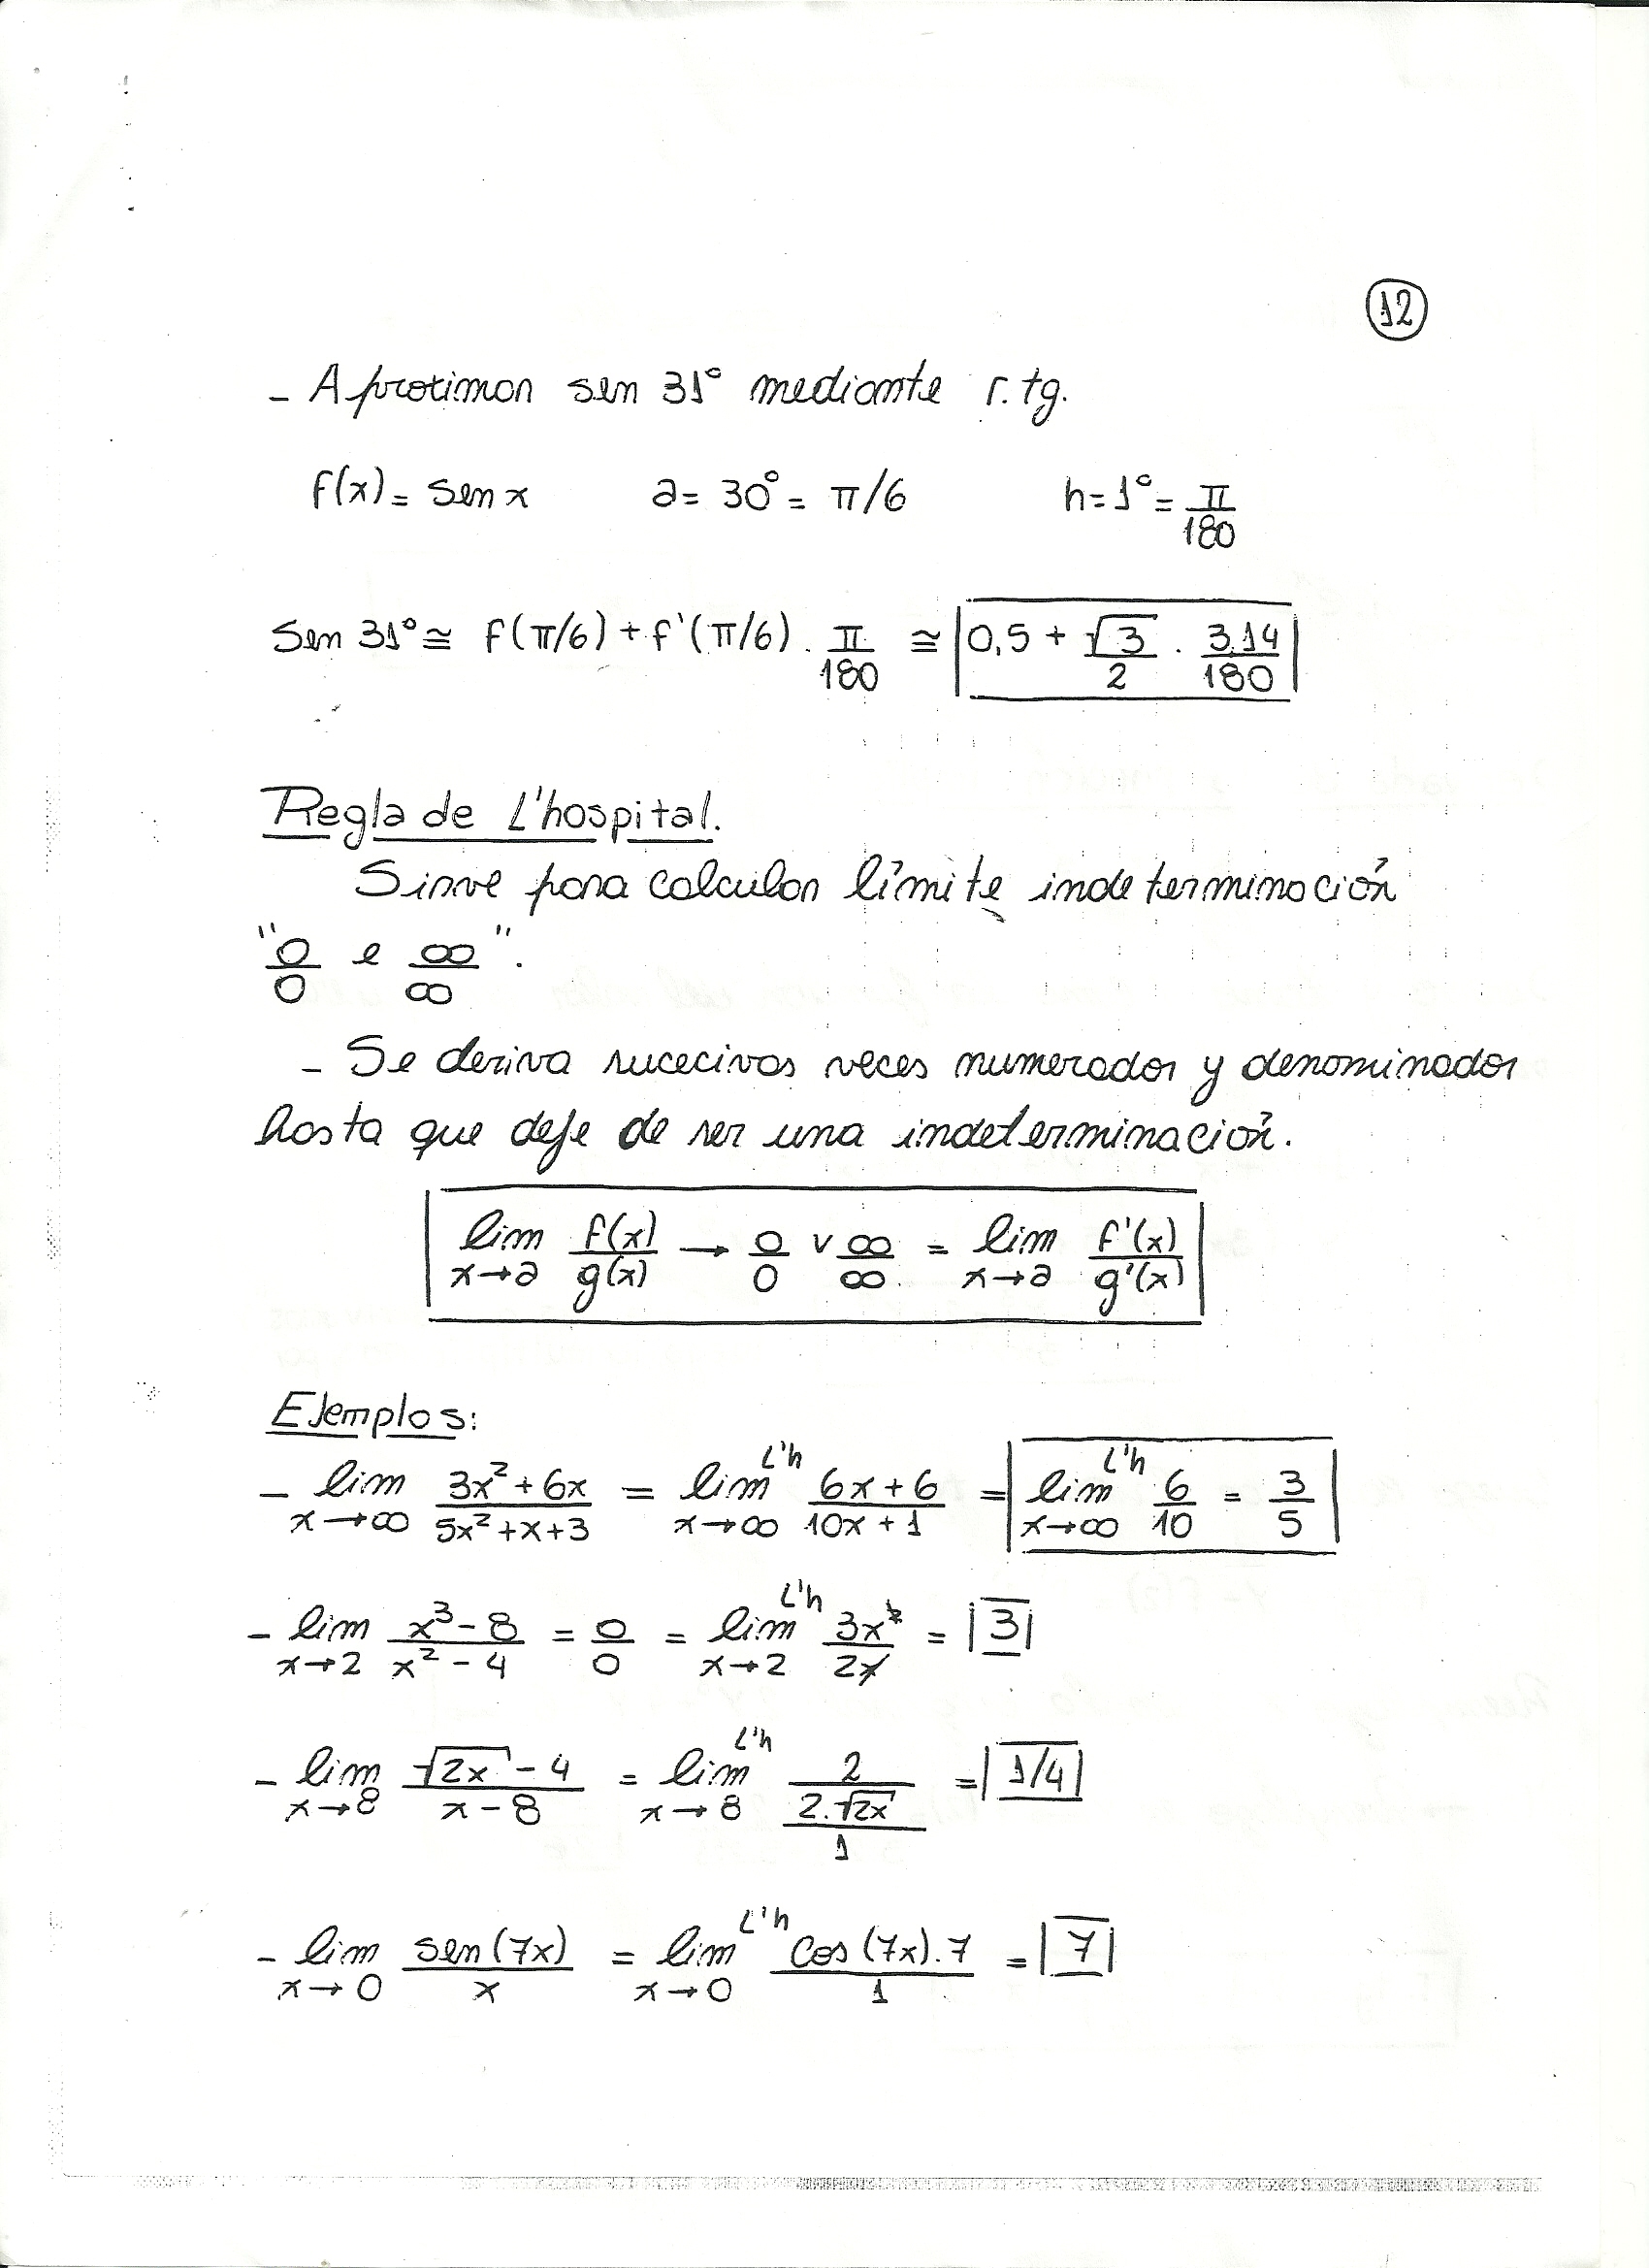 12
- Aproximar sen 31° mediante r. tg.
f(x) = sen x a = 30° = π/6 h = 1° = π/180
Sen 31° ≅ f(π/6) + f'(π/6) . π/180 ≅ 0,5 + √3/2 . 3,14/180
Regla de L'hospital.
Sirve para calcular límite indeterminación
"0/0 e ∞/∞".
- Se deriva sucecivas veces numerador y denominador
hasta que deje de ser una indeterminación.
lim x→a f(x)/g(x) → 0/0 v ∞/∞ = lim x→a f'(x)/g'(x)
Ejemplos:
- lim x→∞ (3x²+6x)/(5x²+x+3) = lim L'h x→∞ (6x+6)/(10x+1) = lim L'h x→∞ 6/10 = 3/5
- lim x→2 (x³-8)/(x²-4) = 0/0 = lim L'h x→2 3x²/2x = 3
- lim x→8 (√2x - 4)/(x-8) = lim L'h x→8 (2/(2.√2x))/1 = 1/4
- lim x→0 sen(7x)/x = lim L'h x→0 cos(7x).7/1 = 7